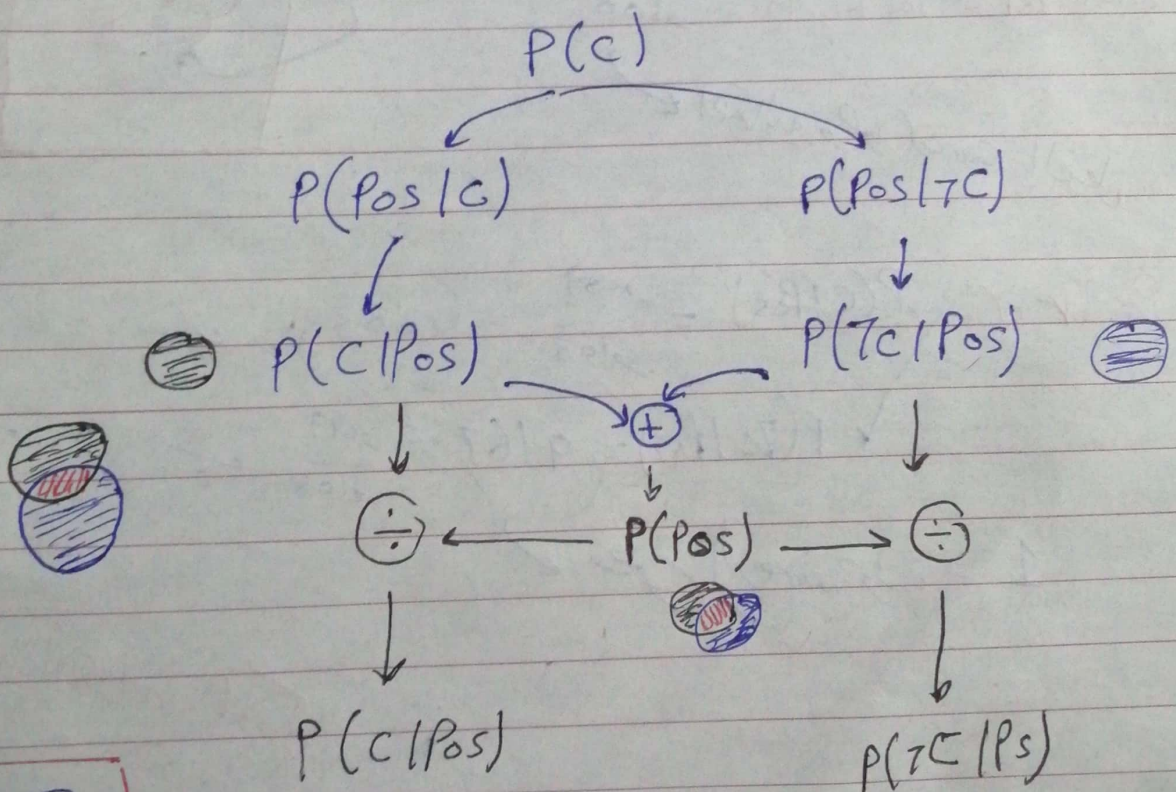 P(C)
P(Pos/C) P(Pos/¬C)
P(C/Pos) P(7C/Pos)
+
÷ P(Pos) ÷
P(C/Pos) P(¬C/Ps)